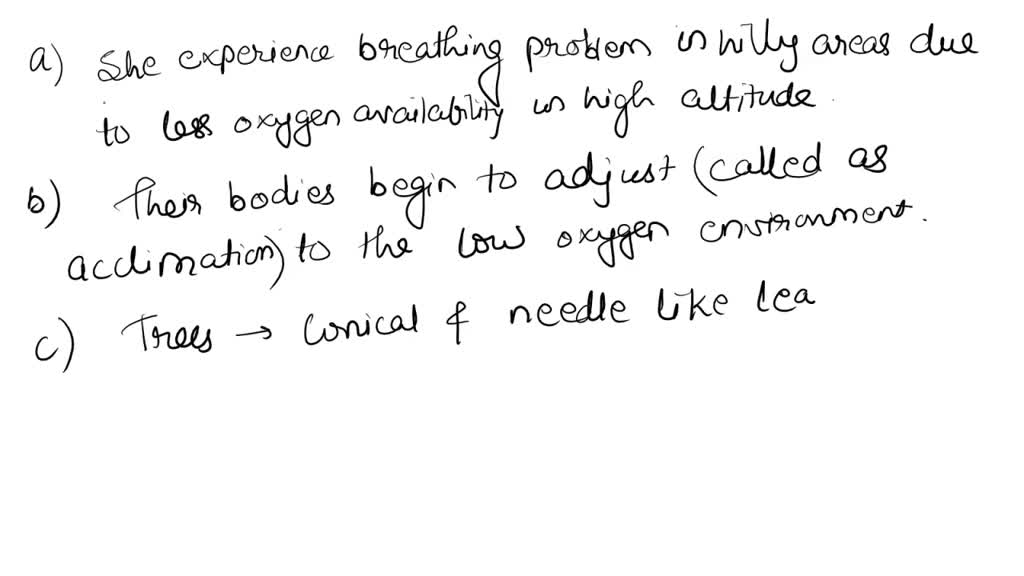 a) She experience breathing problem in hilly areas due
to less oxygen availability in high altitude.
b) Their bodies begin to adjust (called as
acclimation) to the low oxygen environment.
c) Trees → Conical & needle like lea